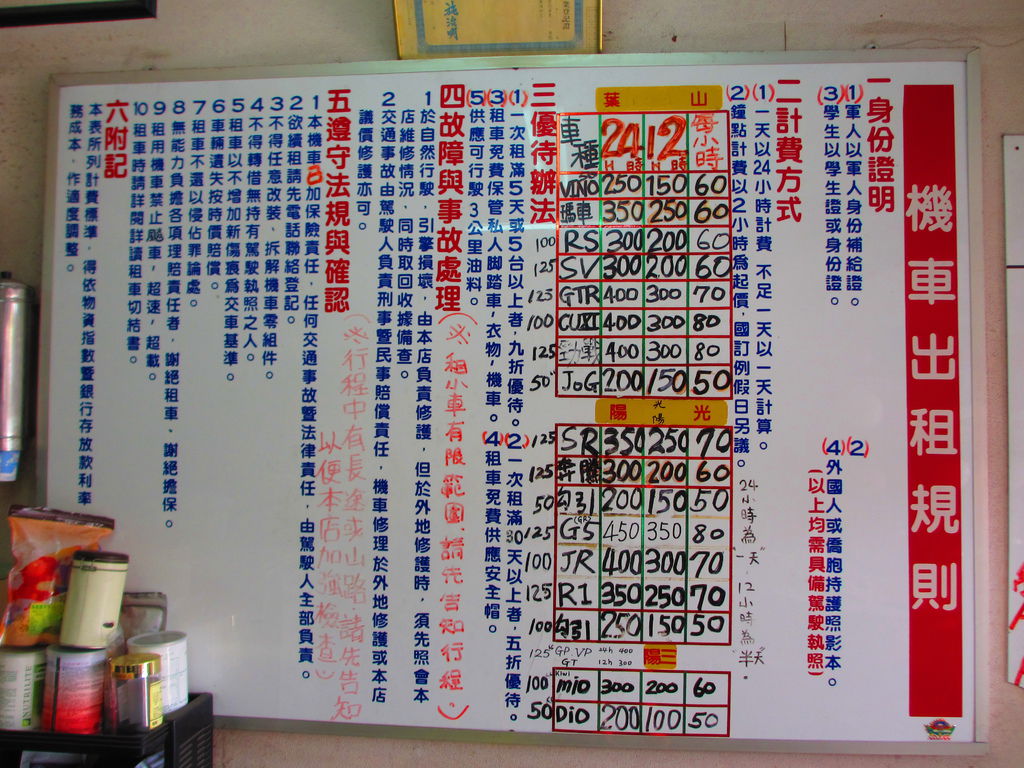 機車出租規則
一身份證明
(1)軍人以軍人身份補給證。
(2)
(3)學生以學生證或身份證。
(4)外國人或僑胞持護照影本。
(以上均需具備駕駛執照)
二計費方式
(1)一天以24小時計費 不足一天以一天計算。
(2)鐘點計費以2小時為起價,國訂例假日另議。
24小時為"一天" 12小時為"半天"
葉 山
車種 24H時 12H時 每小時
VINO 250 150 60
瑪車 350 250 60
100 RS 300 200 60
125 SV 300 200 60
125 GTR 400 300 70
100 CUXI 400 300 80
125 勁戰 400 300 80
50 JOG 200 150 50
陽 光陽 光
125 SR 350 250 70
125 奔騰 300 200 60
50 勾引 200 150 50
125 G5 450 350 80
100 JR 400 300 70
125 R1 350 250 70
100 勾引 250 150 50
125 GP.VP GT 24h 400 12h 300
陽三
100 KIWI mio 300 200 60
50 Dio 200 100 50
三優待辦法
(1)一次租滿5天或5台以上者,九折優待。
(2)一次租滿30天以上者,五折優待。
(3)租車免費保管私人脚踏車,衣物,機車。
(4)租車免費供應安全帽。
(5)供應可行駛3公里油料。
四故障與事故處理
(※.租小車有限範圍.請先告知行程.)
1於自然行駛,引擎損壞,由本店負責修護,但於外地修護時,須先照會本
店維修情況,同時取回收據備查。
2交通事故由駕駛人負責刑事暨民事賠償責任,機車修理於外地修護或本店
議價修護亦可。
五遵守法規與確認
(※.行程中有長途或山路.請先告知
以便本店加強檢查.)
1本機車已加保險責任,任何交通事故暨法律責任,由駕駛人全部負責。
2欲續租請先電話聯絡登記。
3不得任意改裝、拆解機車零組件。
4不得轉借無持有駕駛執照之人。
5租車以不增加新傷痕為交車基準。
6車輛遺失按時價賠償。
7租車不還以侵佔罪論處。
8無能力負擔各項理賠責任者,謝絕租車、謝絕擔保。
9租用機車禁止飆車,超速,超載。
10租車時請詳閱詳讀租車切結書。
六附記
本表所列計費標準,得依物資指數暨銀行存放款利率
務成本,作適度調整。